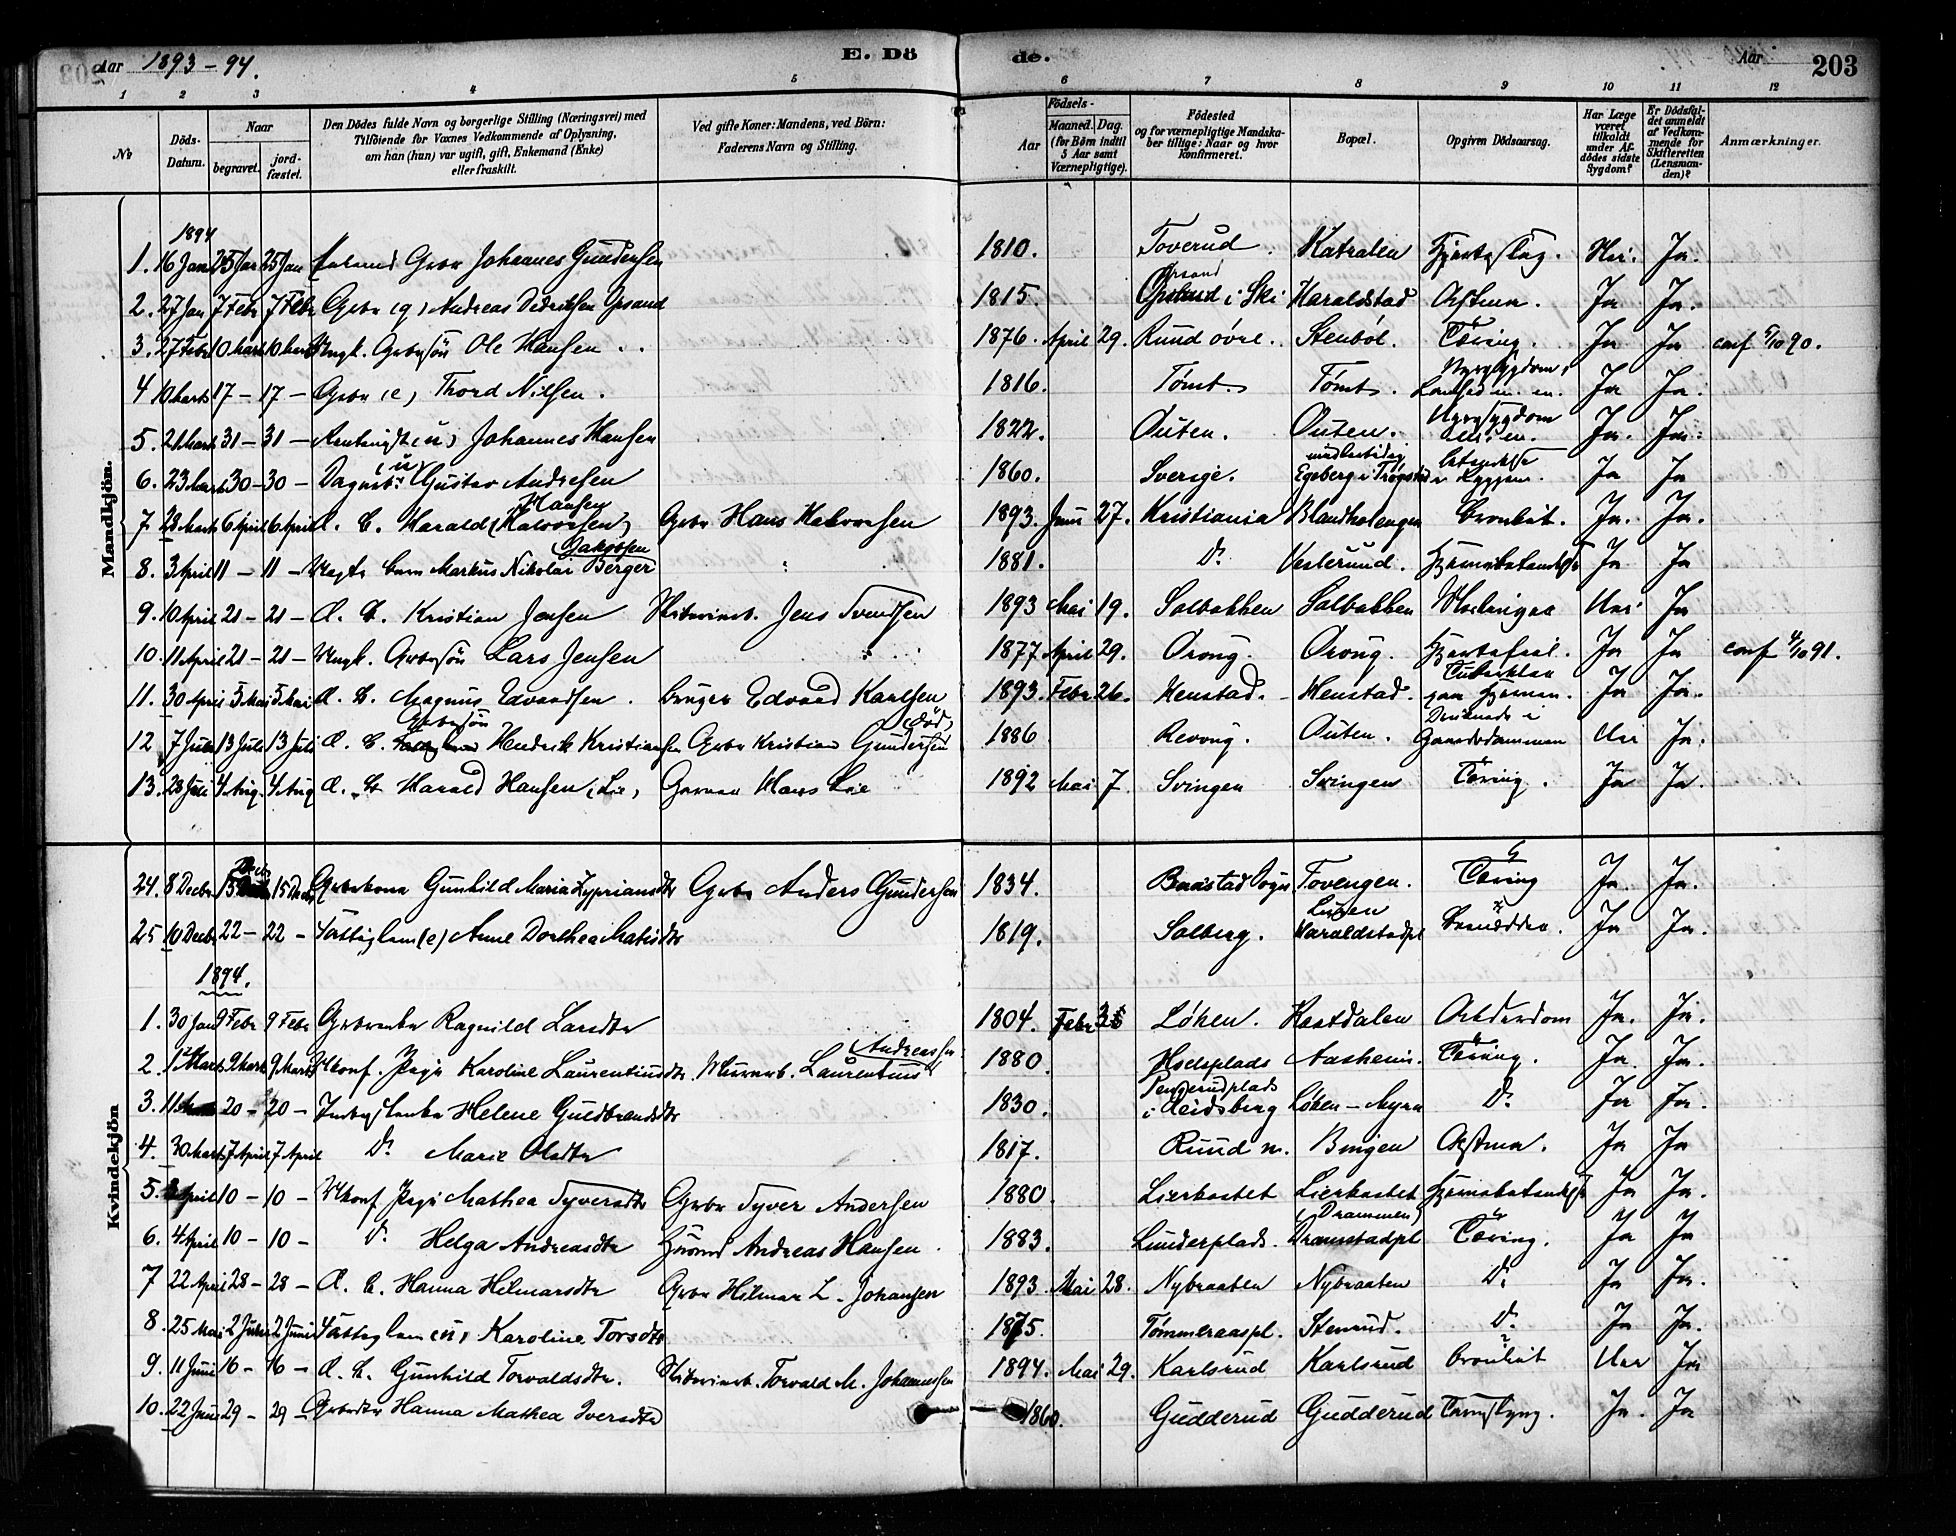 Aar 1893-94.
E. Dö
de.
Aar
203
1 2 3 4 5 6 7 8 9 10 11 12
No
Döds-Datum.
Naar
begravet.
jord-fæstet.
Den Dödes fulde Navn og borgerlige Stilling (Næringsvei) med
Tilföiende for Voxnes Vedkommende af Oplysning,
om han (hun) var ugift, gift, Enkemand (Enke)
eller fraskilt.
Ved gifte Koner: Mandens, ved Börn:
Faderens Navn og Stilling.
Födsels-
Aar
Maaned. Dag.
(for Börn indtil
5 Aar samt
Værnepligtige).
Födested
og for værnepligtige Mandska-
ber tillige: Naar og hvor
konfirmeret.
Bopæl.
Opgiven Dödsaarsag.
Har Læge
været
tilkaldt
under Af-
dödes sidste
Sygdom?
Er Dödsfal-
det anmeldt
af Vedkom-
mende for
Skifteretten
(Lensman-
den)?
Anmærkninger.
Mandkjön.
1894
1. 16 Jan 25 Jan 25 Jan Gbr Johannes Gundersen 1810. Toverud Katralen Hjerteslag. Nei. Ja.
2. 27 Jan 7 Febr 7 Febr Gbr (g) Andreas Dedriksen Orsand 1815. Orsand i Ski Haraldstad Astma. Ja Ja.
3. 27 Febr 10 Marts 10 Marts Ungk. Gbrsön Ole Hansen 1876. April 29. Ruud övre. Stenböl. Tæring. Ja Ja conf 5/10 90.
4 10 Marts 17 - 17 - Gbr (e) Thord Nilsen. 1816. Tömt. Tömt. Nyresygdom, m. m. Ja Ja.
5. 21 Marts 31 - 31 - (u) Johannes Hansen 1822. Outen. Outen. Nyresygdom Ja. Ja.
6. 23 Marts 30 - 30 - Dagarb. (u) Gustav Andresen 1860. Sverige. midlertidig Egeberg i Trögstad Betændelse i Ryggen. Ja Ja
7 28 Marts 6 April 6 April Æ. B. Harald Hansen (Halvorsen) Gbr Hans Halvorsen 1893. Juni 27. Kristiania Blandholengen Bronkit. Ja. Ja.
8. 3 April 11 - 11 - Barn Markus Nikolai Jakobsen Berger 1881. Do Vesterund. Hjernebetændelse Ja Ja
9. 10 April 21 - 21 - Æ. B. Kristian Jensen Jens Svendsen 1893 Mai 19. Solbakken Solbakken Nei Ja
10. 11 April 21 - 21 - Ungk. Gbrsön Lars Jensen 1877 April 29. Oroug. Oroug. Hjertefeil. Ja Ja conf 4/10 91.
11. 30 April 5 Mai 5 Mai Æ. B. Magnus Edvardsen. Bruger Edvard Karlsen 1893. Febr 26. Henstad. Henstad. Tuberkler paa Hjernen. Ja Ja.
12 7 Juli 13 Juli 13 Juli Æ. B. Gbrsön Hendrik Kristiansen Gbr Kristian Gundersen (död) 1886 Revoug. Outen. Druknede i Gaardsdammen Nei Ja.
13. 28 Juli 4 Aug. 4 Aug Æ. B. Harald Hansen (Lie) Hans Lie 1892 Mai 7. Svingen Svingen Tæring. Ja Ja.
Kvindekjön
24. 8 Decbr 15 Decbr 15 Decbr Gbrkone Gunhild Maria Zypriansdtr Gbr Anders Gundersen 1834. Baastad Sogn Tovengen. Tæring Ja Ja.
25 10 Decbr 22 - 22 - Fattiglem (e) Anne Dorthea Matisdtr 1819. Solberg. Haraldstadpl Ja Ja.
1894.
1. 30 Jan 9 Febr 9 Febr Gbrenke Ragnild Larsdtr 1804. Febr Löken. Hastdalen Alderdom Ja. Ja.
2. 1 Marts 9 Marts 9 Marts Ukonf. Pige Karoline Laurentiusdtr. Laurentius Andreassen 1880. Aasheim. Tæring. Ja. Ja.
3. 11 20 - 20 - Enke Helene Guldbrandsdtr 1830. i Eidsberg Löken-Myra Do Ja Ja.
4. 30 Marts 7 April 7 April Do Marie Olsdtr 1817. Ruud n. Bingen Astma. Ja Ja
5. April 10 - 10 - Ukonf Pige Mathea Syversdtr Gbr Syver Andersen 1880. Lierkastet Lierkastet Hjernebetændelse Ja Ja.
6. 4 April 10 - 10 - Do Helga Andreasdtr Andreas Hansen. 1883. Lunderplads. (Drammen) Dramstadpl Tæring. Ja Ja
7 22 April 28 - 28 - Æ. B. Hanna Hilmarsdtr Gbr Hilmar L. Johansen 1893. Mai 28. Nybraaten Nybraaten Do Ja Ja.
8. 25 Mai 2 Juni 2 Juni Fattiglem (u) Karoline Torsdtr 1875. Tömmeraaspl. Stenrud. Do Ja Ja.
9. 11 Juni 16 - 16 - Æ. B. Gunhild Torvaldsdtr. Torvald M. Johannessen 1894. Mai 29. Karlsrud Karlsrud Bronkit Nei Ja
10. 22 Juni 29 - 29 - Gbrdtr Hanna Mathea Iversdtr 1860. Gudderud Gudderud Ja. Ja